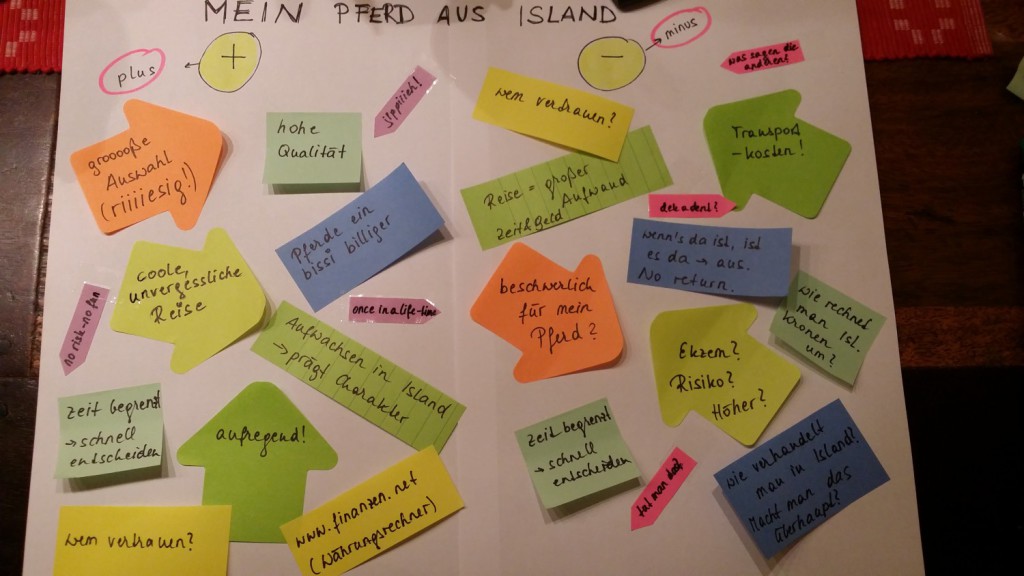 MEIN PFERD AUS ISLAND
plus
+
grooooße
Auswahl
(riiiiesig!)
hohe
Qualität
üppiiich!
Pferde ein
bissi billiger
coole,
unvergessliche
Reise
no risk-no fun
once in a life-time
Aufwachsen in Island
→ prägt Charakter
Zeit begrenzt
→ schnell
entscheiden
aufregend!
wem vertrauen?
www.finanzen.net
(Währungsrechner)
–
minus
was sagen die
anderen?
wem vertrauen?
Transport
-kosten!
Reise = großer
Zeit&Geld Aufwand
dekadent?
wenn's da ist, ist
es da → aus.
No return.
beschwerlich
für mein
Pferd?
wie rechnet
man isl.
kronen
um?
Ekzem?
Risiko?
Höher?
Zeit begrenzt
→ schnell
entscheiden
tut man das?
wie verhandelt
man in Island?
Macht man das
überhaupt?